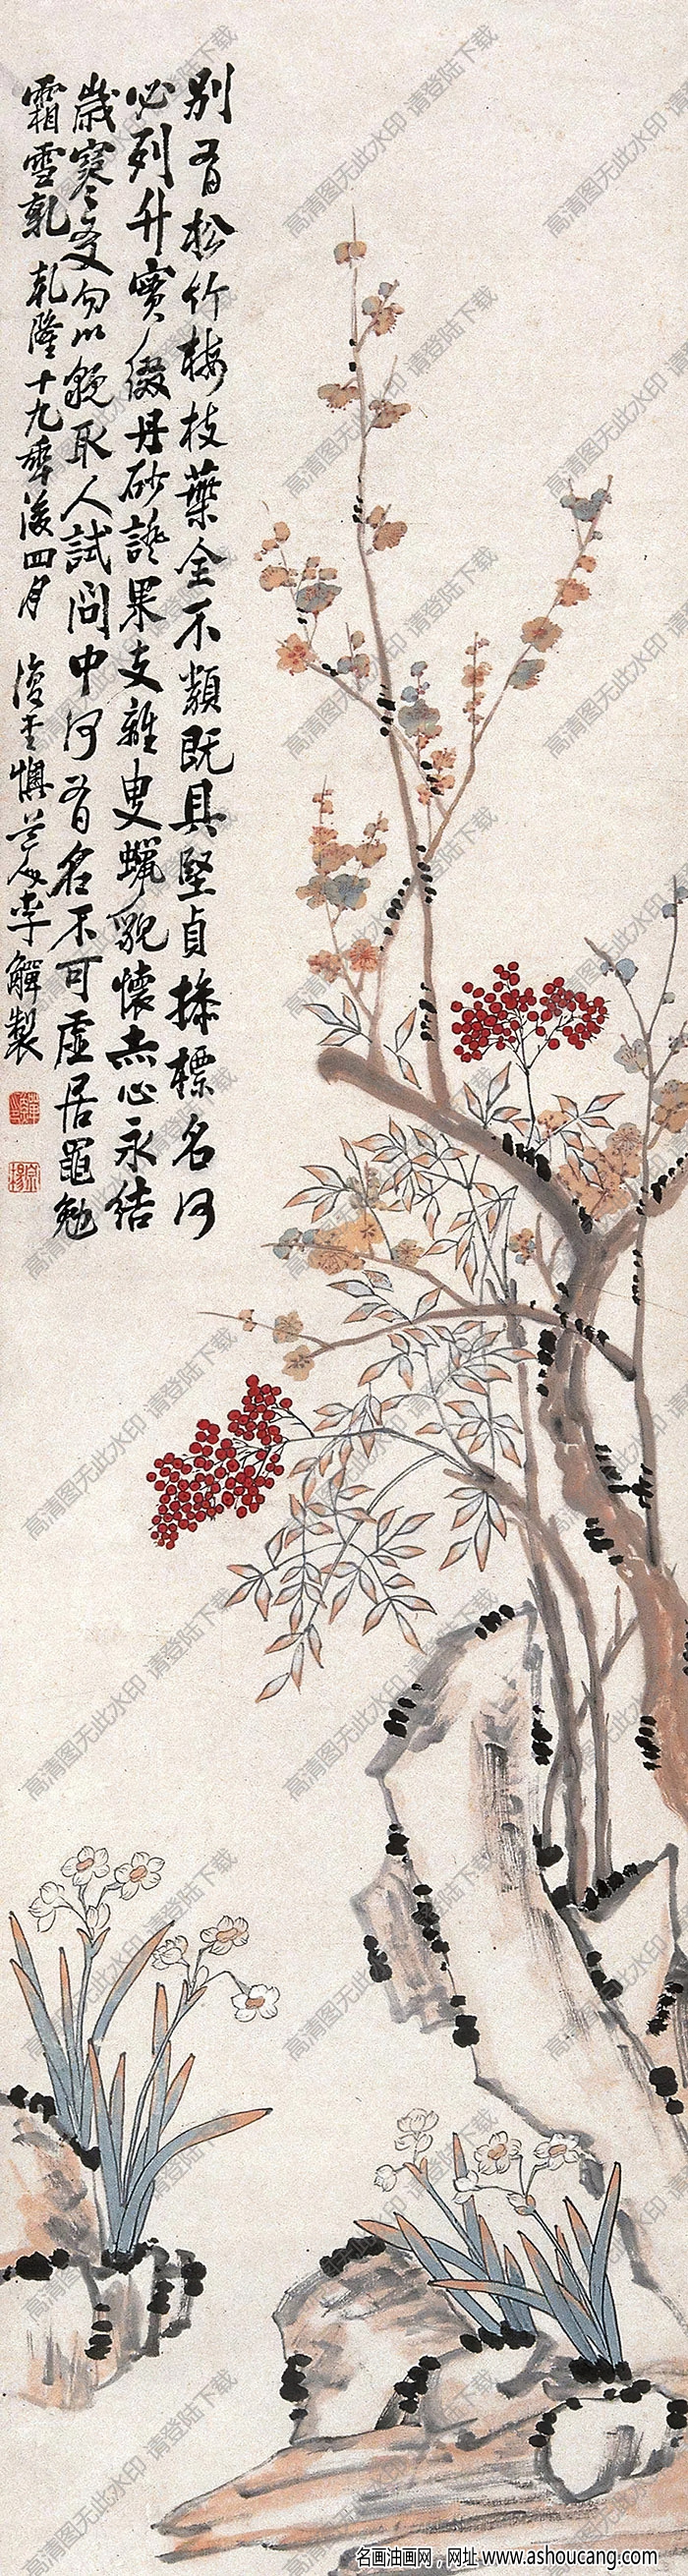 別有松竹梅枝葉全不類既具堅貞操標名何
必列升實實綴丹砂詫果支離叟蠟貌懷赤心永結
歲寒友勿以貌取人試問中何有名不可虛居黽勉
霜雪
乾隆十九年後四月 復堂懊道人李觶製
高清图无此水印 请登陆下载
名画油画网，网址 www.ashoucang.com